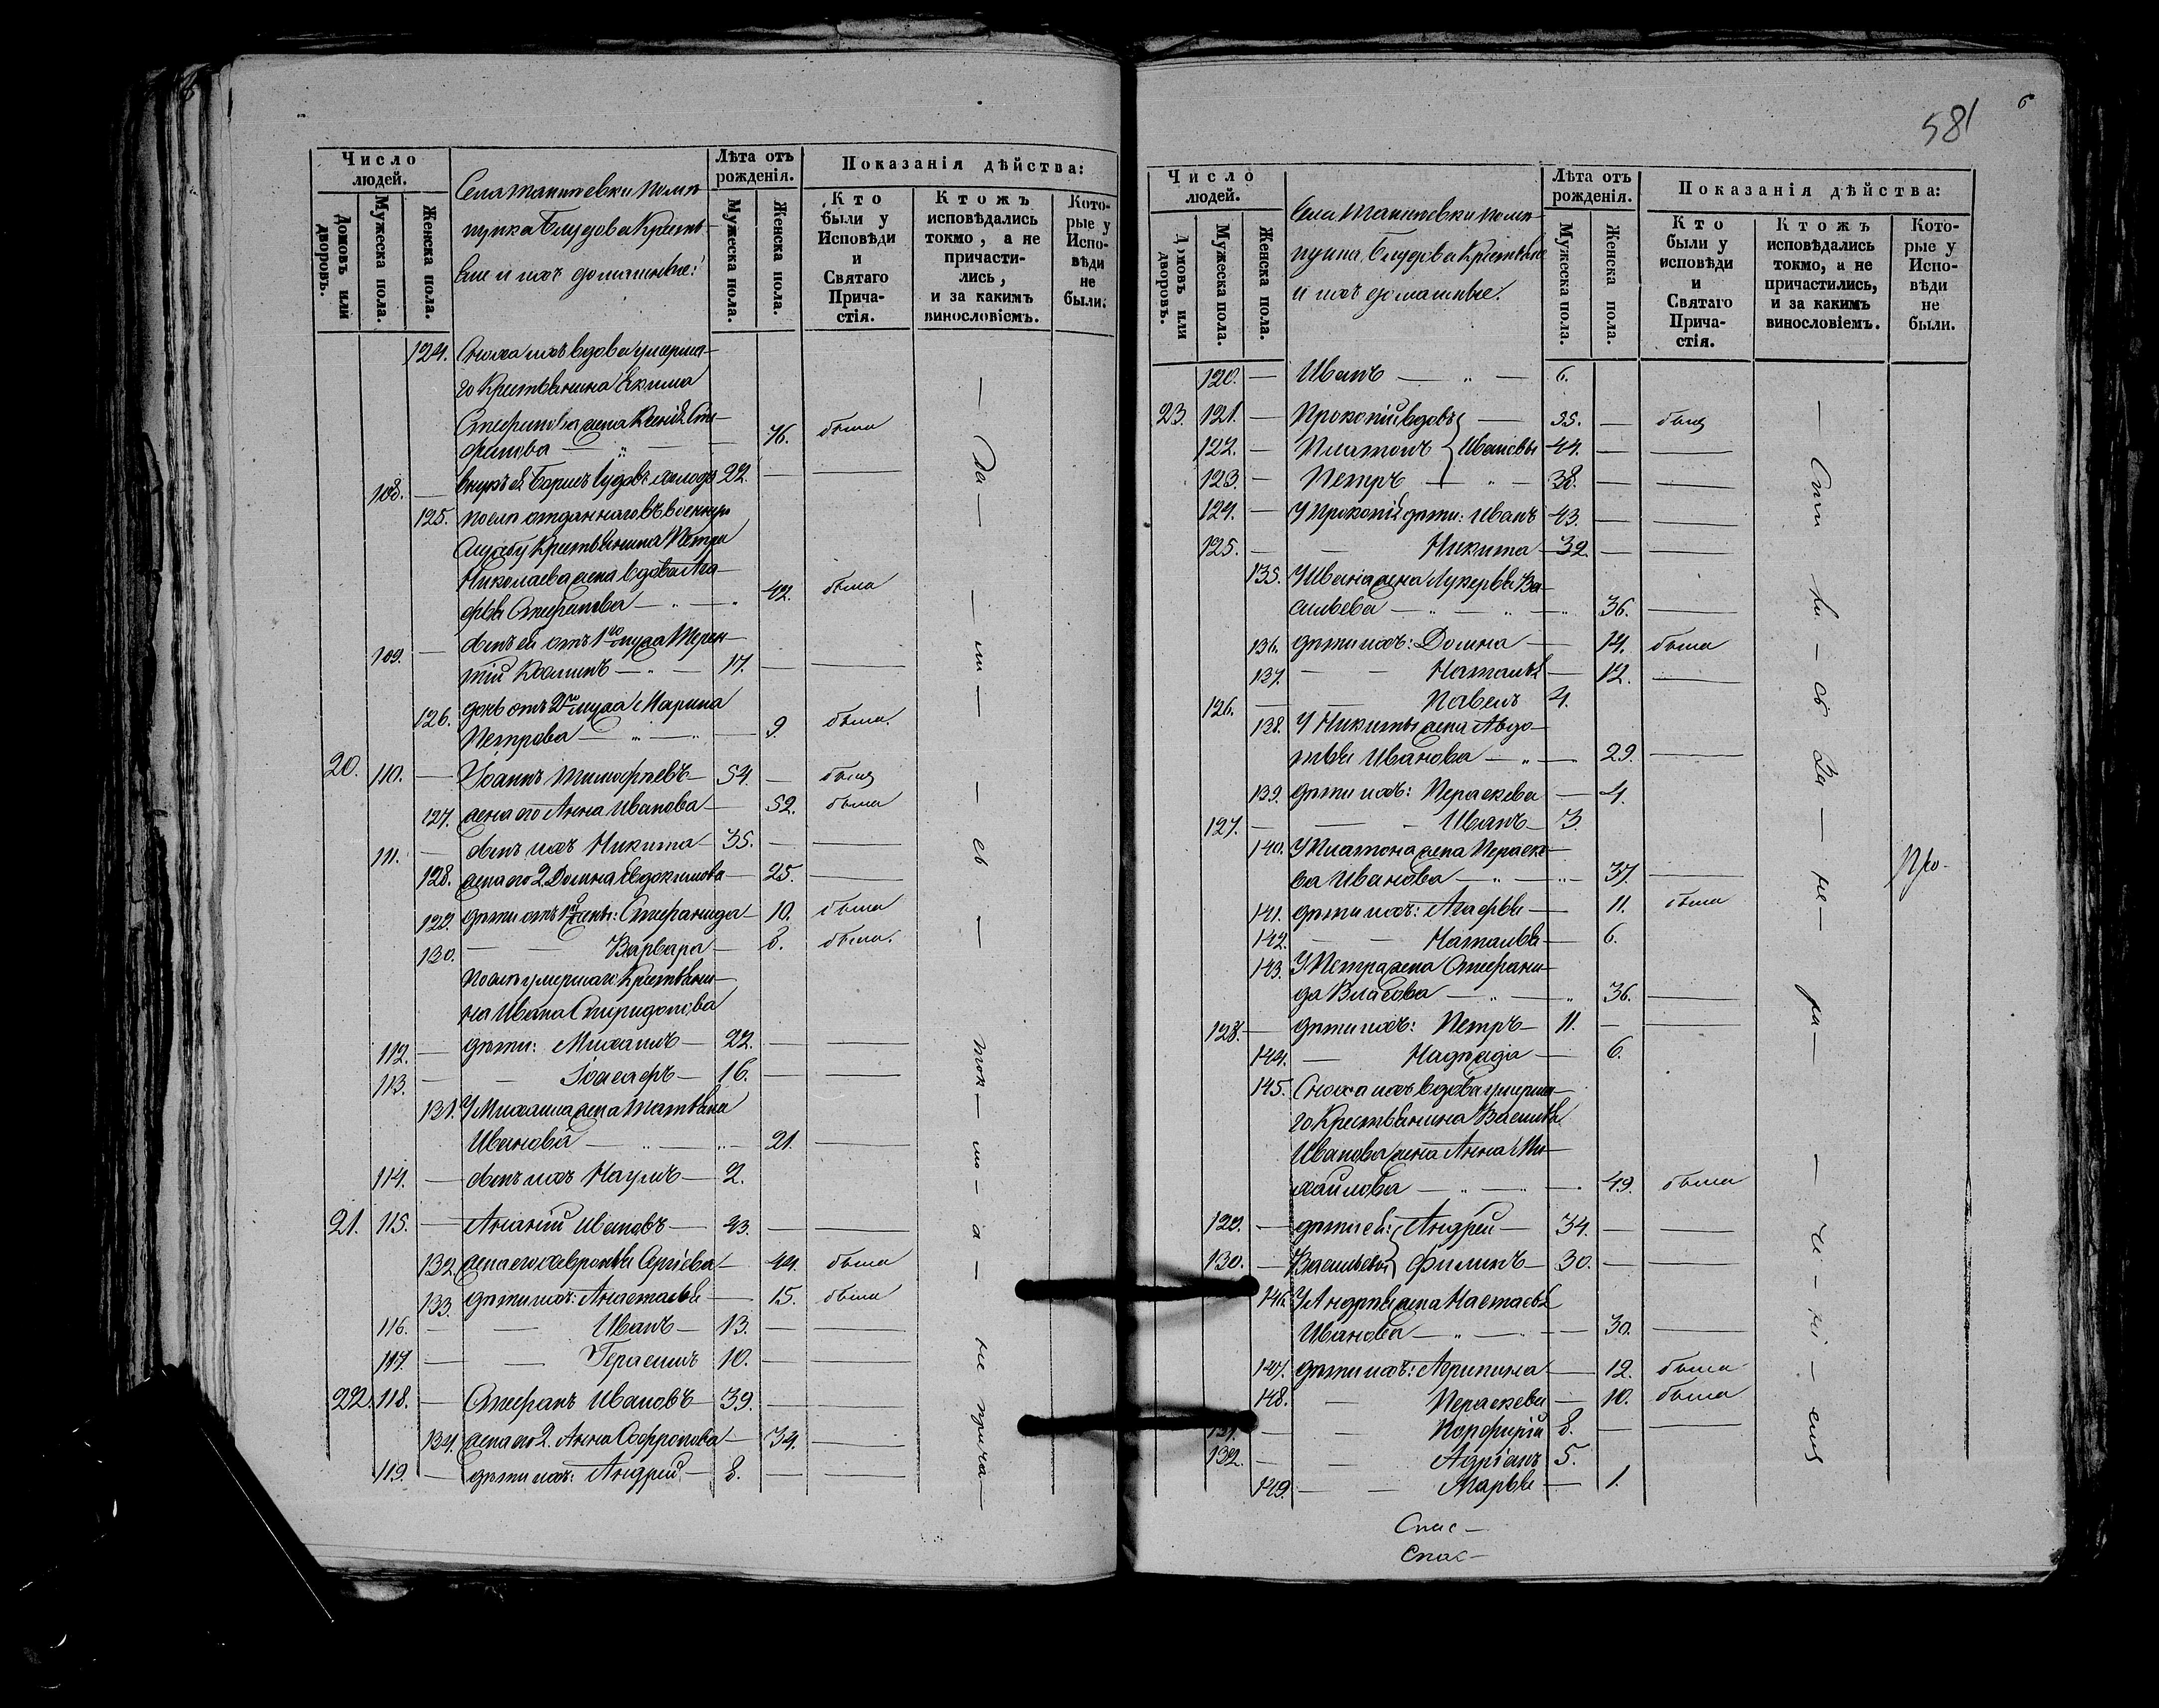 Число людей.
Домовъ или дворовъ.
Мужеска пола.
Женска пола.
Лѣта отъ рожденія.
Мужеска пола.
Женска пола.
Показанія дѣйства:
Кто были у Исповѣди и Святаго Причастія.
Ктожъ исповѣдались токмо, а не причастились, и за какимъ винословіемъ.
Которые у Исповѣди не были.
124. Сноха ихъ вдова умерша-
го Крестьянина
Стефанова жена
фанова — 76. была
108. — внукъ ея Борисъ 22. —
125. после отданнаго въ военную
службу Крестьянина Петра
Николаева жена вдова Ага-
фья Стефанова — 42. была
109. — сынъ ея отъ 1го мужа Терен-
тій — 17. —
126. дочь отъ 2го мужа Марина
Петрова — 9 была.
20. 110. — Іоаннъ Тимофеевъ — 54. — былъ
127. жена его Анна Иванова — 52. была
111. — сынъ ихъ Никита — 35. —
128. жена его 2. Домна Евдокимова — 25. —
129. дѣти отъ 1й жены: Стефанида — 10. была
130. — Варвара — 8. была.
После умершаго Крестьяни-
на Ивана Спиридонова
112. — дѣти: Михаилъ — 22. —
113. — Іоасафъ — 16. —
131. У Михаила жена Татьяна
Иванова — 21. —
114. — сынъ ихъ Наумъ — 2.
21. 115. — Ананій Ивановъ — 43. —
132. жена его Хавронья Сергіева — 44. была
133. дѣти ихъ: Анастасья — 15. была
116. — Иванъ — 13. —
117. — Герасимъ 10. —
22. 118. — Стефанъ Ивановъ — 39. —
134. жена его 2. Анна Софронова — 34. —
119. — дѣти ихъ: Андрей — 8. —
да — ли — сь — ток — мо — а — не прича —
581
6
Число людей.
Домовъ или дворовъ.
Мужеска пола.
Женска пола.
Лѣта отъ рожденія.
Мужеска пола.
Женска пола.
Показанія дѣйства:
Кто были у исповѣди и Святаго Причастія.
Ктожъ исповѣдались токмо, а не причастились, и за какимъ винословіемъ.
Которые у Исповѣди не были.
и ихъ домашные.
120. — Иванъ — 6.
23. 121. — Прокопій вдовъ — 55. — былъ
122. — Платонъ } Ивановы 44. —
123. — Петръ — 38. —
124. — У Прокопія дѣти: Иванъ 43. —
125. — Никита — 32. —
135. У Ивана жена Лукерья Ва-
сильева — 36. —
136. дѣти ихъ: Домна — 14. была
137. — Наталья — 12. —
126. — Павелъ 4.
138. У Никиты жена Авдо-
тья Иванова — 29. —
139. дѣти ихъ: Пераскева — 4.
127. — Иванъ — 3.
140. У Платона жена Пераске-
ва Иванова — 37. —
141. дѣти ихъ: Агафья — 11. была
142. — Наталья — 6.
143. У Петра жена Стефани-
да Власова — 36. —
128. — дѣти ихъ: Петръ — 11. —
144. — Надежда — 6.
145. Сноха ихъ вдова умерша-
го Крестьянина Василья
Иванова жена Анна Ми-
хайлова — 49. была
129. — дѣти ея: { Андрей — 34. —
130. — Васильевы } Филипъ — 30. —
146. У Андрея жена Настасья
Иванова — 30. —
147. дѣти ихъ: Агрипина — 12. была
148. — Пераскева — 10. была
131. — Порфирій 8. —
132. — Адріанъ 5.
149. — Марья — 1.
сти ли — сь за — не — ра — че — ні — емъ
про-
Спас-
Спас-